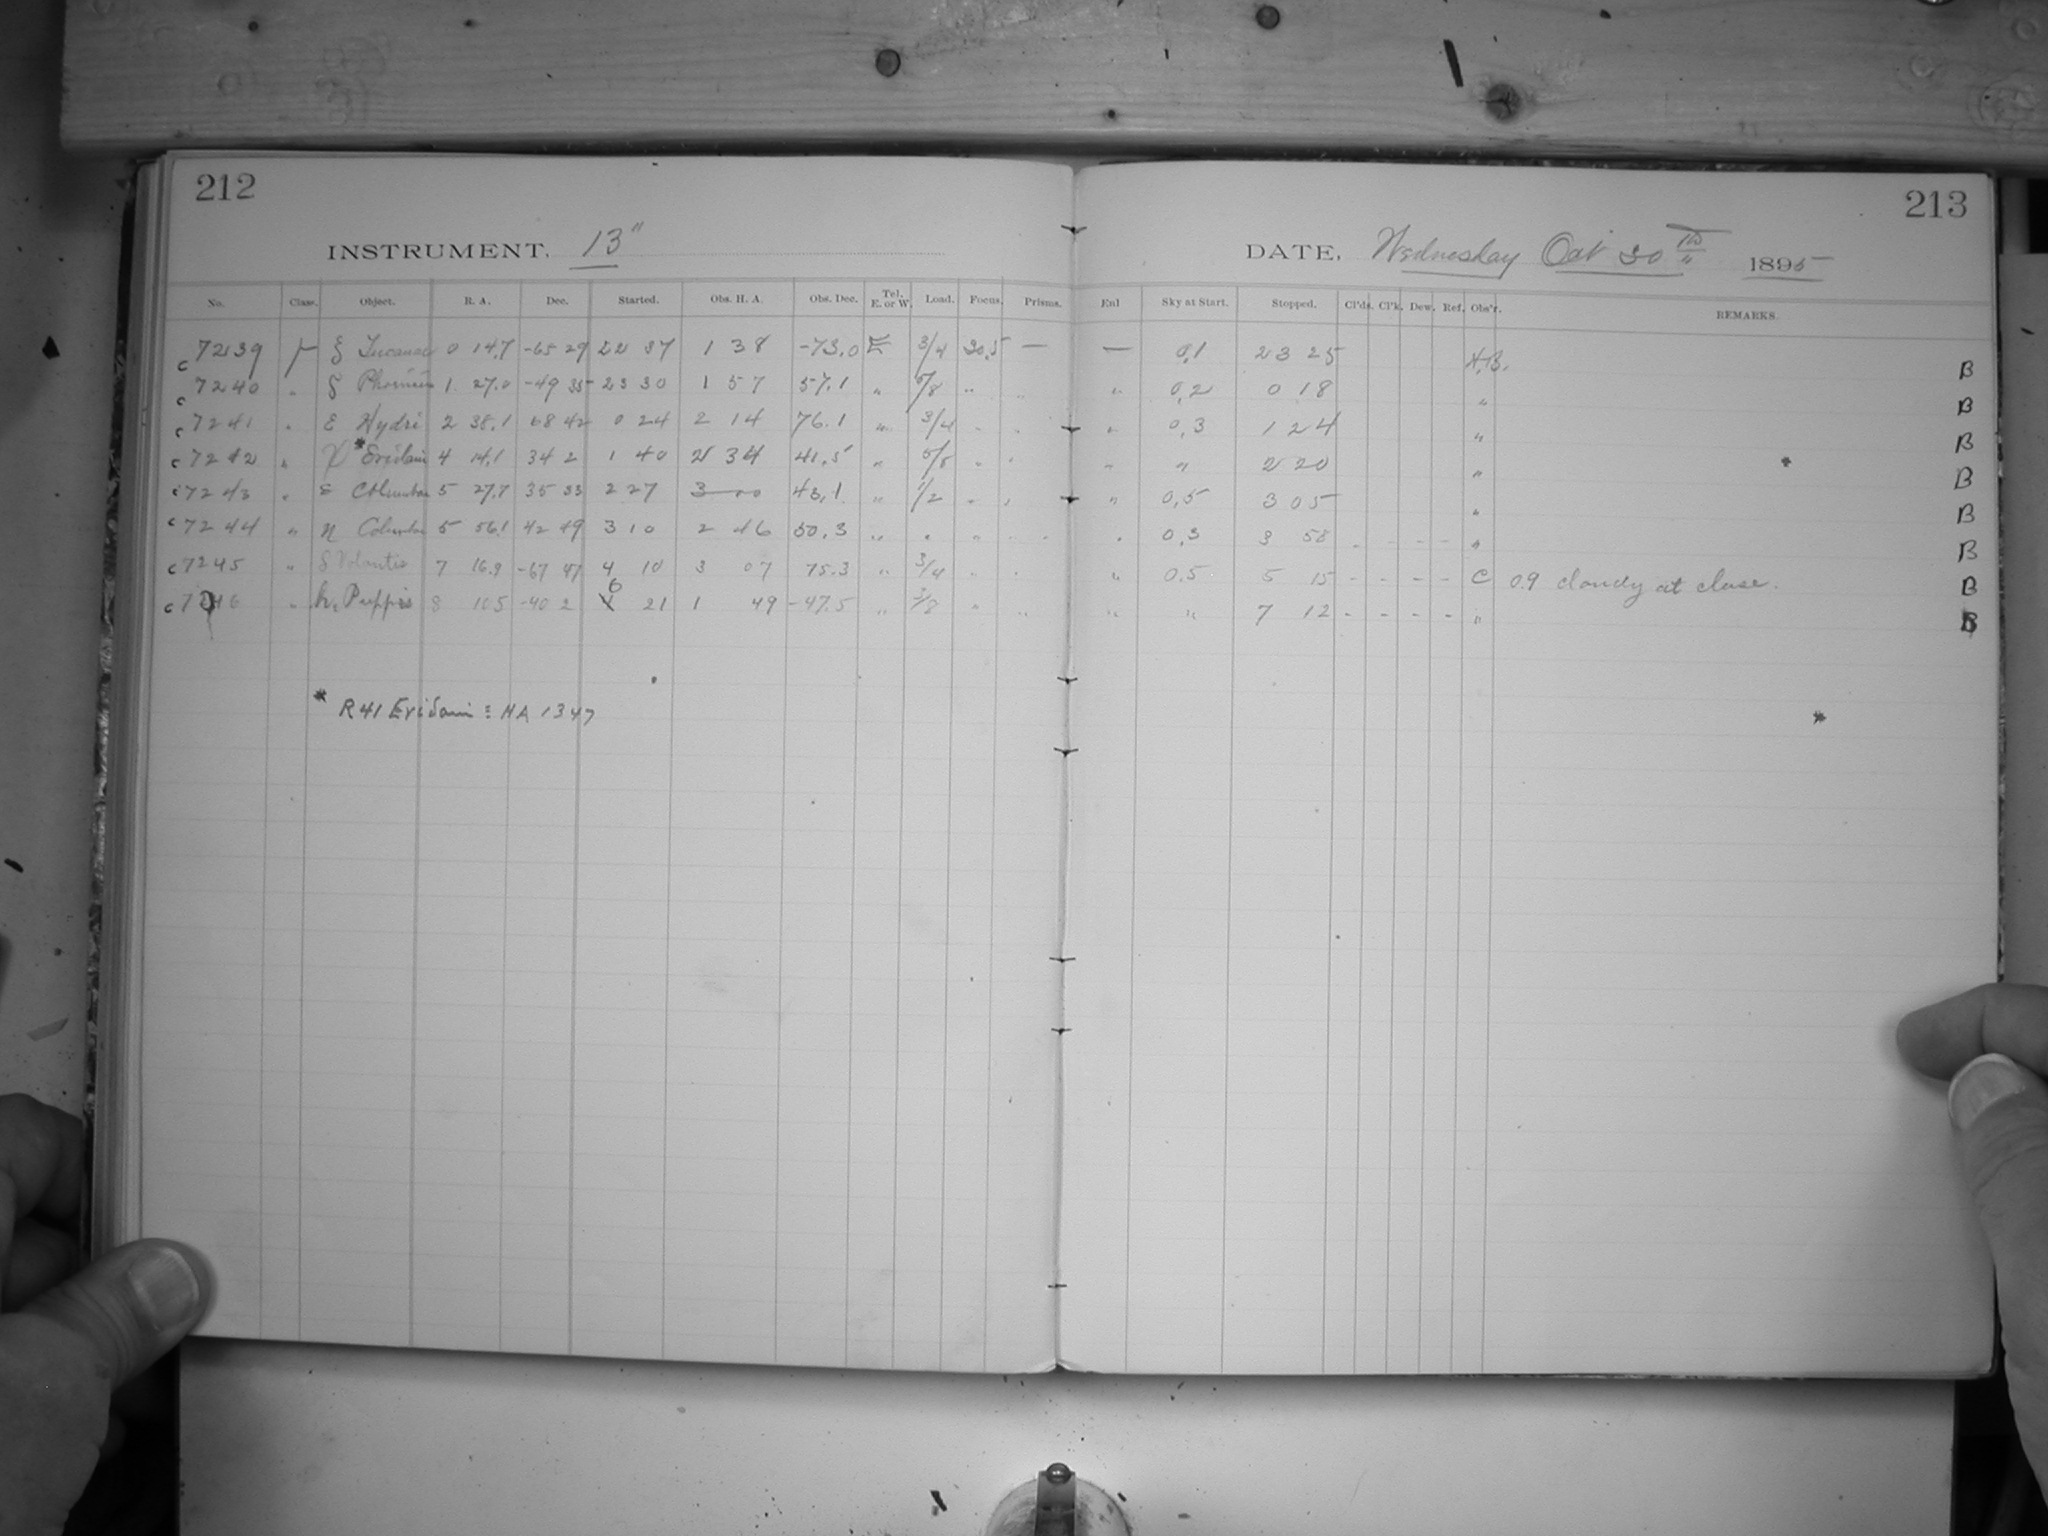 212
INSTRUMENT. 13"
No. Class. Object. R. A. Dec. Started. Obs. H. A. Obs. Dec. Tel. E. or W. Load. Focus. Prisms.
c 7239 ξ Tucanae 0 14.7 -65 29 22 37 1 38 -73.0 E 3/4 30.5 —
c 7240 " Phoenicis 1 27.0 -49 35 23 30 1 57 57.1 " 5/8 " "
c 7241 " ε Hydri 2 38.1 68 42 0 24 2 14 76.1 " 3/4 " "
c 7242 " * Eridani 4 14.1 34 2 1 40 2 34 41.5 " 5/8 " "
c 7243 " ε Columbae 5 27.7 35 33 2 27 3 00 43.1 " 1/2 " "
c 7244 " η Columbae 5 56.1 42 49 3 10 2 46 50.3 " " " "
c 7245 " δ Volantis 7 16.9 -67 47 4 10 3 07 75.3 " 3/4 " "
c 7246 " h. Puppis 8 10.5 -40 2 6 21 1 49 -47.5 " 3/8 " "
* R41 Eridani = HA 1347
213
DATE, Wednesday Oct 30th 1895
Enl Sky at Start. Stopped. Cl'ds. Cl'k. Dew. Ref. Obs'r. REMARKS.
— 0.1 23 25 H.B. B
" 0.2 0 18 " B
" 0.3 1 24 " B
" " 2 20 " * B
" 0.5 3 05 " B
" 0.3 3 58 - - - - " B
" 0.5 5 15 - - - - C 0.9 cloudy at close. B
" " 7 12 - - - - " B
*